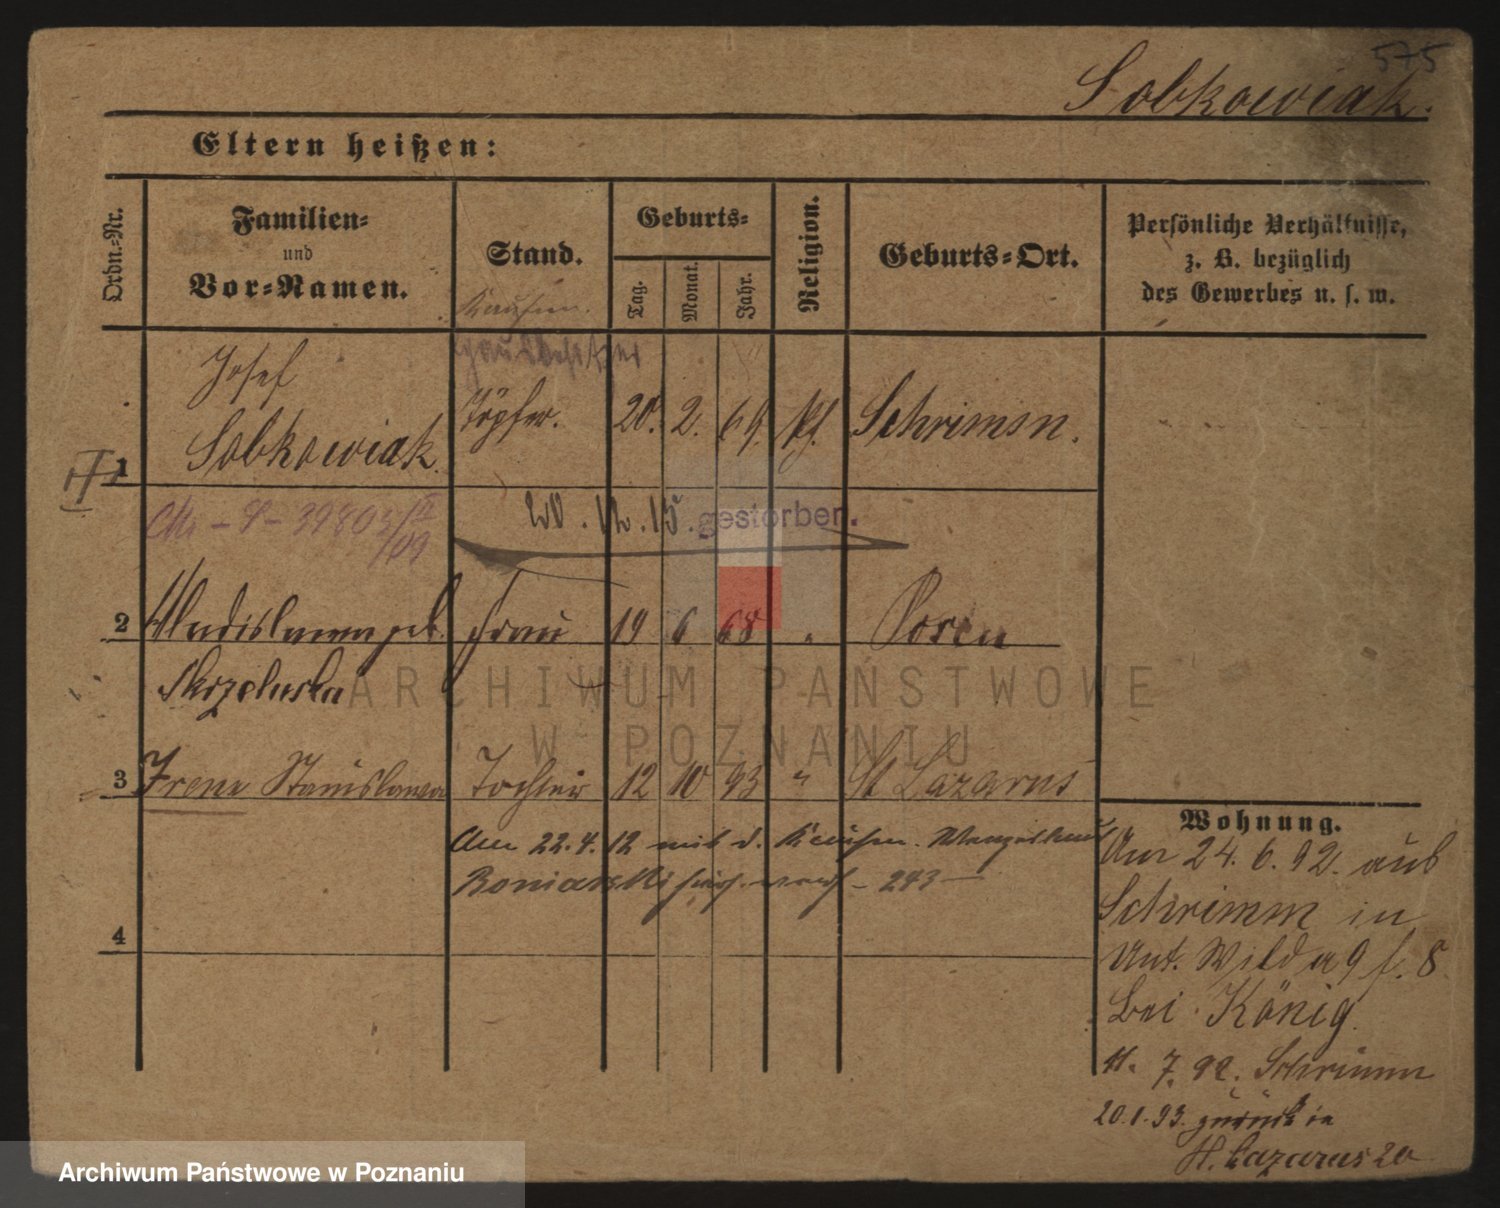 575
Sobkowiak.
Eltern heißen:
Ordn.=Nr.
Familien=
und
Vor=Namen.
Stand.
Geburts=
Tag.
Monat.
Jahr.
Religion.
Geburts=Ort.
Persönliche Verhältnisse,
z. B. bezüglich
des Gewerbes u. s. w.
Kaufm.
Hausbesitzer
1
Josef
Sobkowiak.
Töpfer.
20. 2. 69. kf. Schrimm.
20.12.15. gestorben.
2 Wladislawa geb. Frau 19 6 68 " Posen
3 Irene Stanislawa Tochter 12 10 93 " St Lazarus
Am 22.4.12 mit d. Kaufm.
Boniarski
243
4
ARCHIWUM PAŃSTWOWE
W POZNANIU
Wohnung.
Am 24. 6. 92. aus
Schrimm in
Unt. Wilda 9 f. 8
bei König.
11. 7. 92. Schrimm
20.1.93. zurück in
St. Lazarus 20
Archiwum Państwowe w Poznaniu